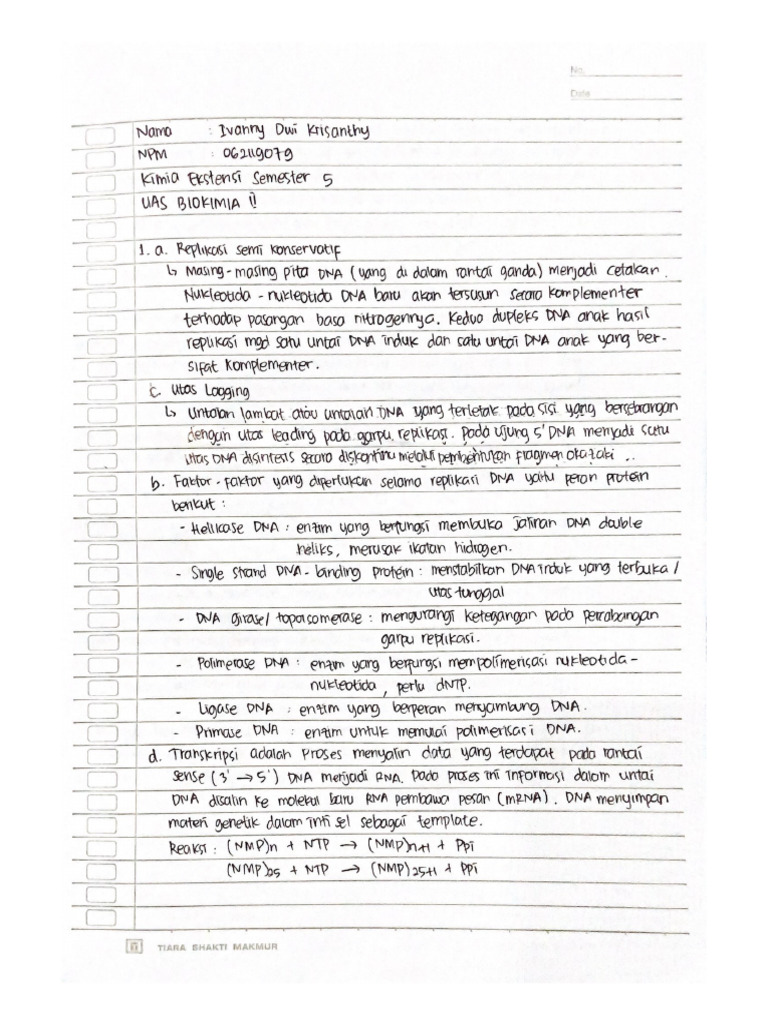 No.
Date
Nama : Ivanny Dwi Krisanthy
NPM : 062119079
Kimia Ekstensi Semester 5
UAS BIOKIMIA II
1. a. Replikasi semi konservatif
↳ Masing-masing pita DNA (yang di dalam rantai ganda) menjadi cetakan.
Nukleotida-nukleotida DNA baru akan tersusun secara komplementer
terhadap pasangan basa nitrogennya. Kedua dupleks DNA anak hasil
replikasi mgd satu untai DNA induk dan satu untai DNA anak yang ber-
sifat komplementer.
c. Utas Lagging
↳ Untaian lambat atau untaian DNA yang terletak pada sisi yang berseberangan
dengan utas leading pada garpu replikasi. pada ujung 5' DNA menjadi satu
utas DNA disintesis secara diskontinu melalui pembentukan fragmen okazaki ..
b. Faktor-faktor yang diperlukan selama replikasi DNA yaitu peran protein
berikut :
- Helikase DNA : enzim yang berfungsi membuka jalinan DNA double
heliks, merusak ikatan hidrogen.
- Single strand DNA-binding protein : menstabilkan DNA induk yang terbuka /
utas tunggal
- DNA girase/ topoisomerase : mengurangi ketegangan pada percabangan
garpu replikasi.
- Polimerase DNA : enzim yang berfungsi mempolimerisasi nukleotida-
nukleotida, perlu dNTP.
- Ligase DNA : enzim yang berperan menyambung DNA.
- Primase DNA : enzim untuk memulai polimerisasi DNA.
d. Transkripsi adalah proses menyalin data yang terdapat pada rantai
sense (3' → 5') DNA menjadi RNA. Pada proses ini informasi dalam untai
DNA disalin ke molekul baru RNA pembawa pesan (mRNA). DNA menyimpan
materi genetik dalam inti sel sebagai template.
Reaksi : (NMP)n + NTP → (NMP)n+1 + PPi
(NMP)25 + NTP → (NMP)25+1 + PPi
TIARA BHAKTI MAKMUR